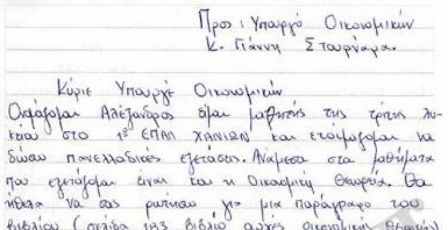 Προς: Υπουργό Οικονομικών
Κ. Γιάννη Στουρνάρα.
Κύριε Υπουργέ Οικονομικών
Ονομάζομαι Αλέξανδρος είμαι μαθητής της τρίτης λυ-
κείου στο 1ο ΕΠΑΛ ΧΑΝΙΩΝ και ετοιμάζομαι να
δώσω πανελλαδικές εξετάσεις. Ανάμεσα στα μαθήματα
που εξετάζομαι είναι και η Οικονομική Θεωρία. Θα
ήθελα να σας ρωτήσω για μια παράγραφο του
βιβλίου (σελίδα 183 βιβλίο αρχές οικονομικής θεωρίας)